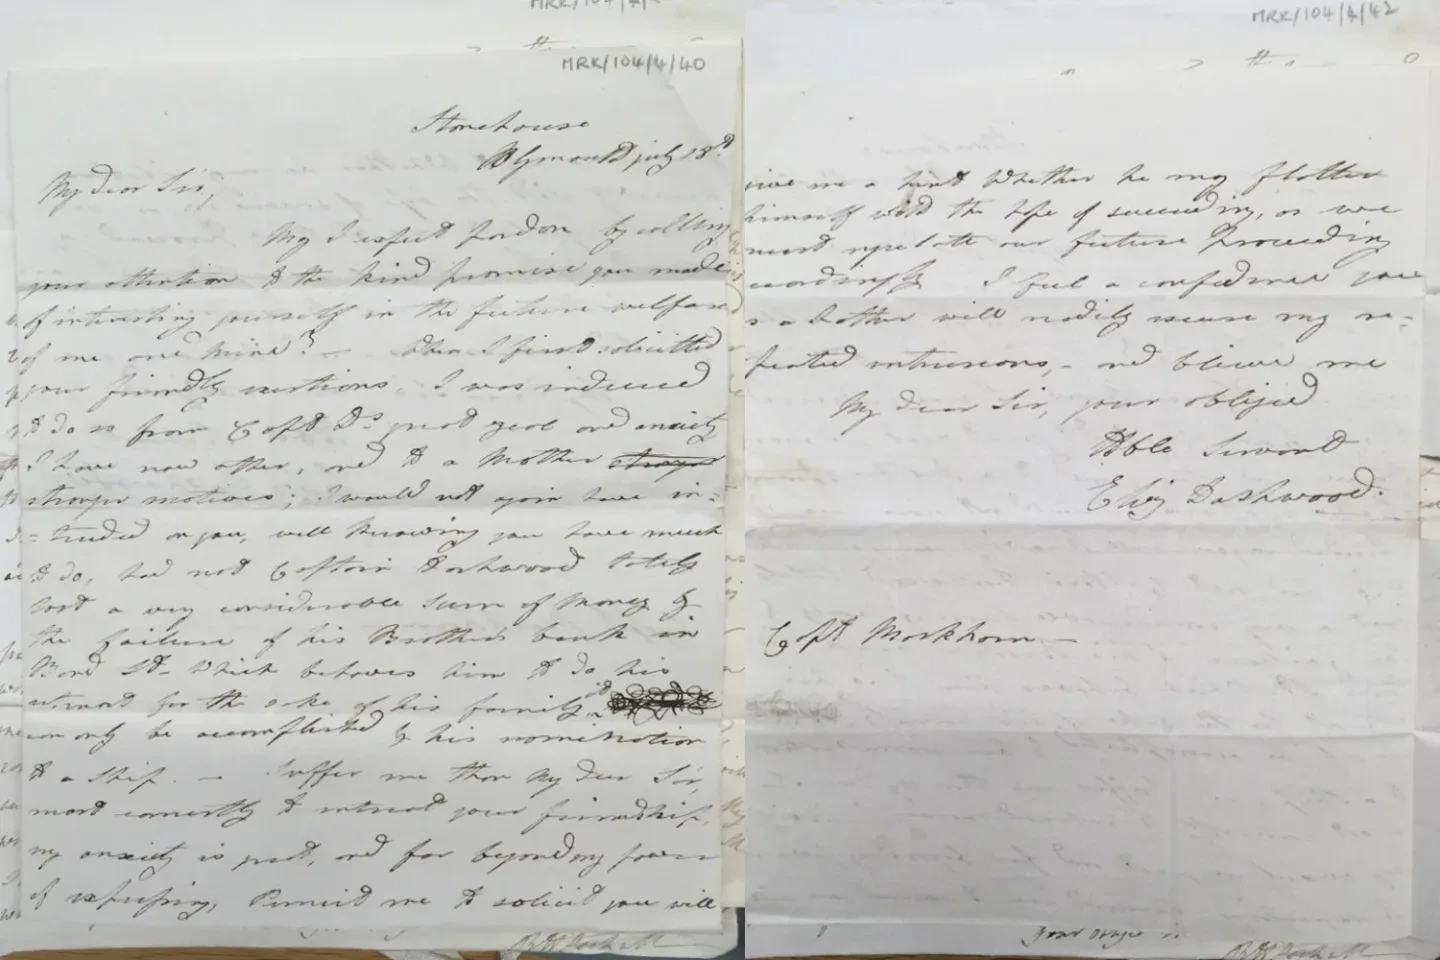 MRK/104/4/40
Stonehouse
Plymouth July 28th
My Dear Sir,
May I expect pardon by calling
your attention to the kind promise you made
of interesting yourself in the future welfare
of me and mine? — When I first solicitted
your friendly exertions, I was induced
to do so from Capt Ds great zeal and anxiety
I have now other, and to a Mother
stronger motives; I would not again have in-
-truded on you, well knowing you have much
to do, had not Captain Dashwood totaly
lost a very considerable Sum of Money by
the failure of his Brothers bank in
Bond St— Which behoves him to do his
utmost for the sake of his family, it
can only be accomplished by his nomination
to a Ship. — Suffer me then My dear Sir,
most earnestly to intreat your friendship,
my anxiety is great, and far beyond my power
of expressing, Permit me to solicit you will
MRK/104/4/42
give me a hint Whether he may flatter
himself with the hope of succeeding, as we
must regulate our future Proceeding
accordingly I feel a confidence you
as a Father will readily excuse my re-
peated intrusions, - and believe me
My dear Sir, your obliged
Hble Servant
Eliz Dashwood.
Capt Markham —